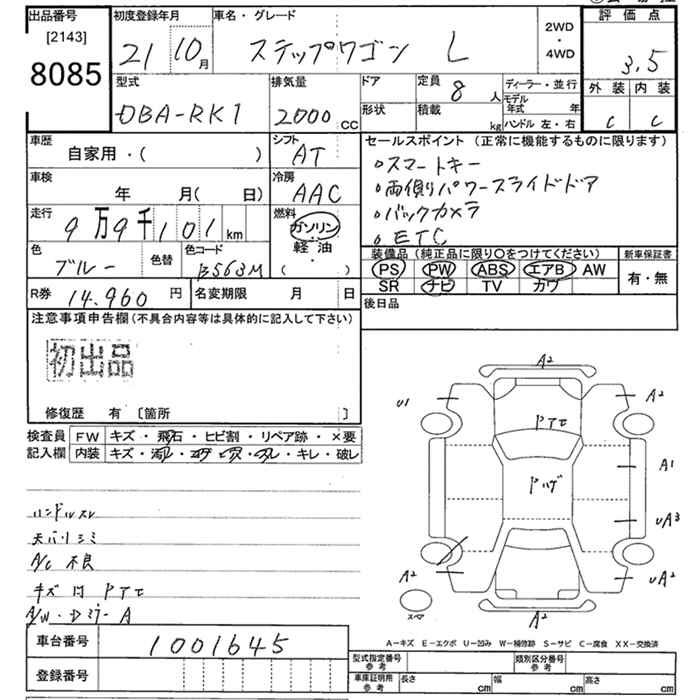 出品番号
[2143]
8085
初度登録年月
21 10月
車名・グレード
ステップワゴン L
2WD
・
4WD
評価点
3.5
外装 内装
C C
型式
DBA-RK1
排気量
2000 CC
ドア
形状
定員
8人
積載
kg
ディーラー・並行
モデル年式 年
ハンドル 左・右
車歴
自家用・( )
シフト
AT
車検
年 月( 日)
冷房
AAC
走行
9万9千101km
燃料
ガソリン
軽油
( )
色
ブルー
色替
色コード
B563M
R券 14,960円
名変期限 月 日
セールスポイント(正常に機能するものに限ります)
○スマートキー
○両側パワースライドドア
○バックカメラ
○ETC
装備品(純正品に限り○をつけてください)
PS PW ABS エアB AW
SR ナビ TV カワ
新車保証書
有・無
後日品
注意事項申告欄(不具合内容等は具体的に記入して下さい)
初出品
修復歴 有 [箇所 ]
検査員記入欄
FW キズ・飛石・ヒビ割・リペア跡・×要
内装 キズ・汚れ・コゲ・ヒズ・スレ・キレ・破レ
ハンドルスレ
天バリシミ
A/C 不良
キズ 凹 PTモ
A/W・Dミラー A
車台番号 1001645
登録番号
A2
U1
A2
PTモ
A1
Pハゲ
UA3
A2
UA2
スペア
A2
A-キズ E-エクボ U-凹み W-補修跡 S-サビ C-腐食 XX-交換済
型式指定番号参考
類別区分番号参考
車庫証明用参考
長さ cm 幅 cm 高さ cm